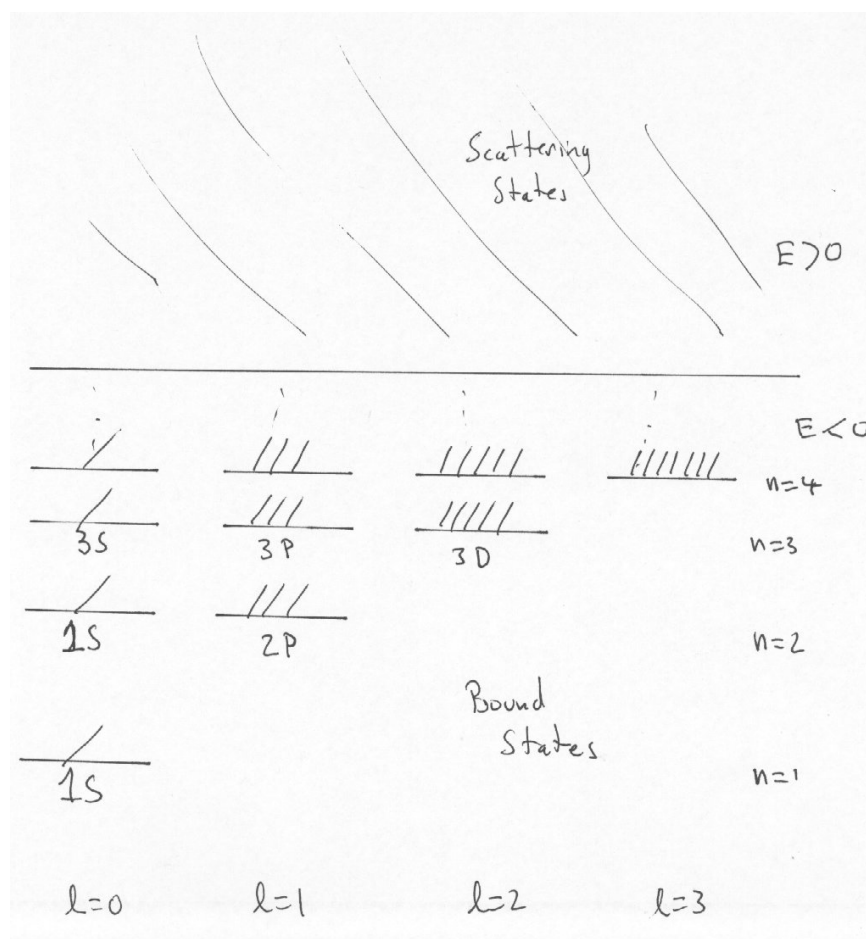 Scattering
States
E>0
E<0
n=4
3S 3P 3D n=3
1S 2P n=2
Bound
States
1S n=1
l=0 l=1 l=2 l=3